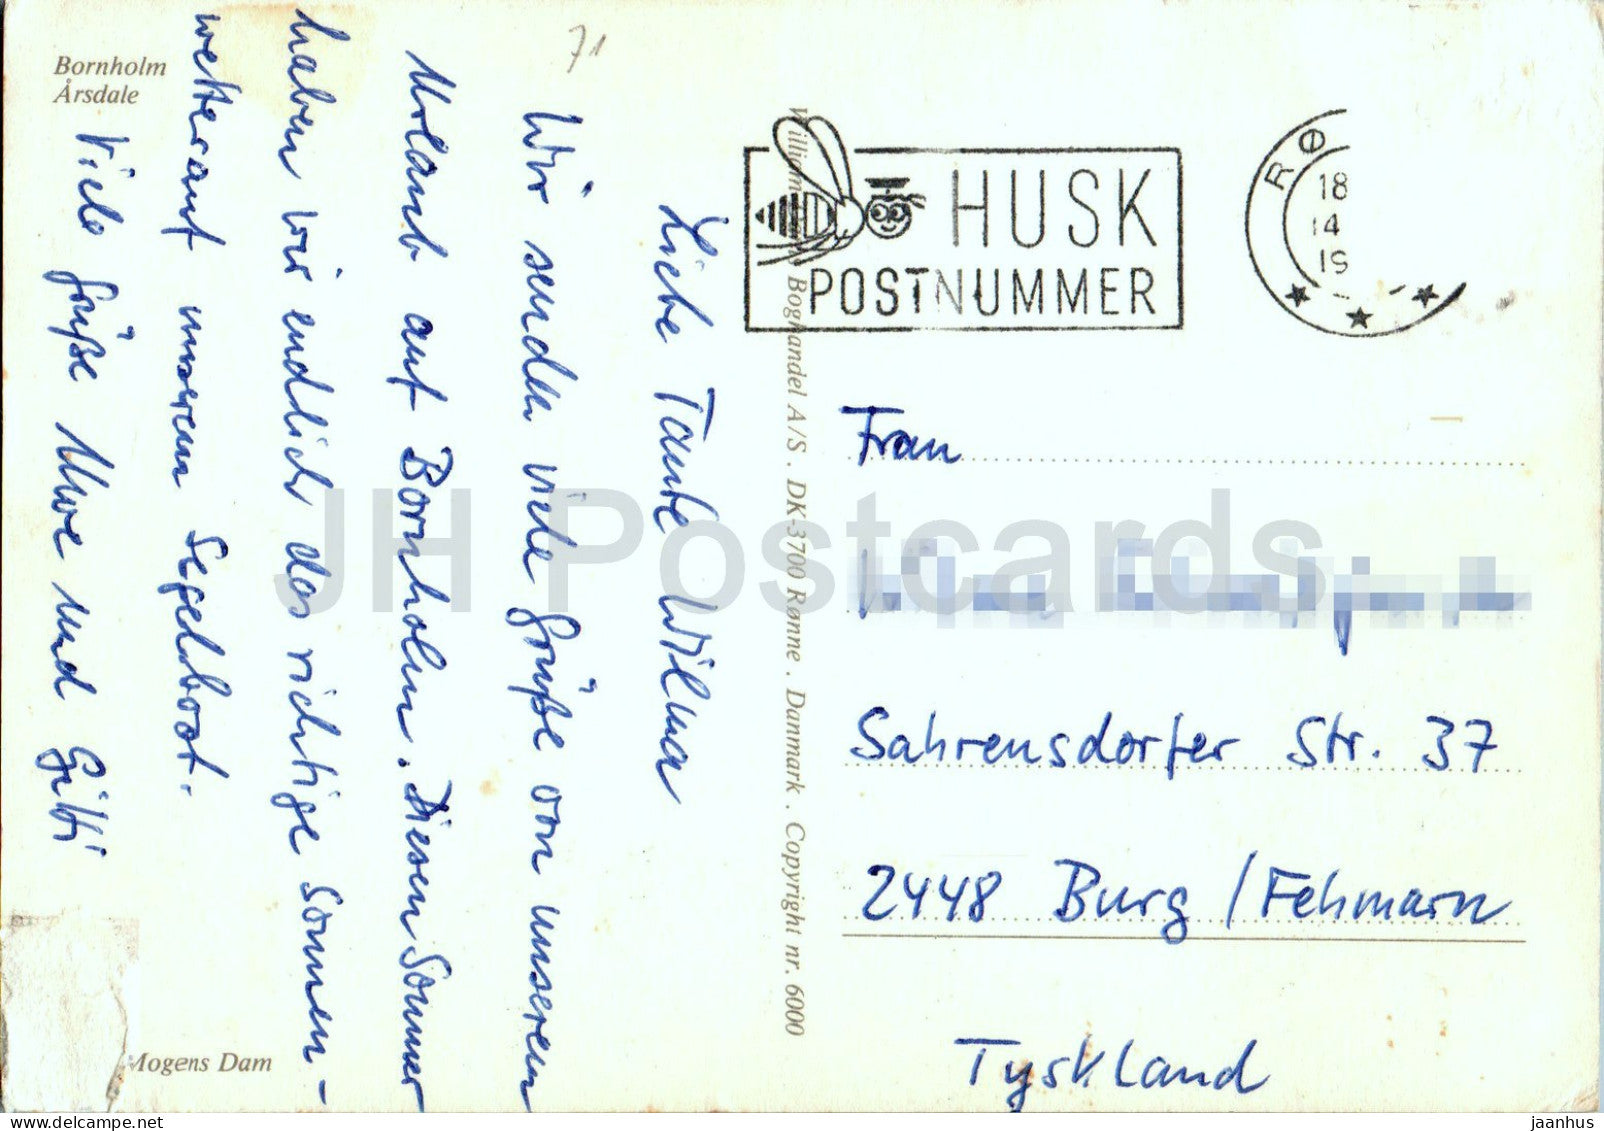 Bornholm
Årsdale
71
Liebe Tante Wilma
Wir senden viele Grüße von unserem
Urlaub auf Bornholm. Diesen Sommer
haben wir endlich das richtige Sonnen-
wetter auf unserem Segelboot.
Viele Grüße Uwe und Gitti
Mogens Dam
Boghandel A/S . DK-3700 Rønne . Danmark . Copyright nr. 6000
HUSK
POSTNUMMER
RØ
18
14
19
Frau
Sahrensdorfer Str. 37
2448 Burg / Fehmarn
Tyskland
JH Postcards
jaanhus